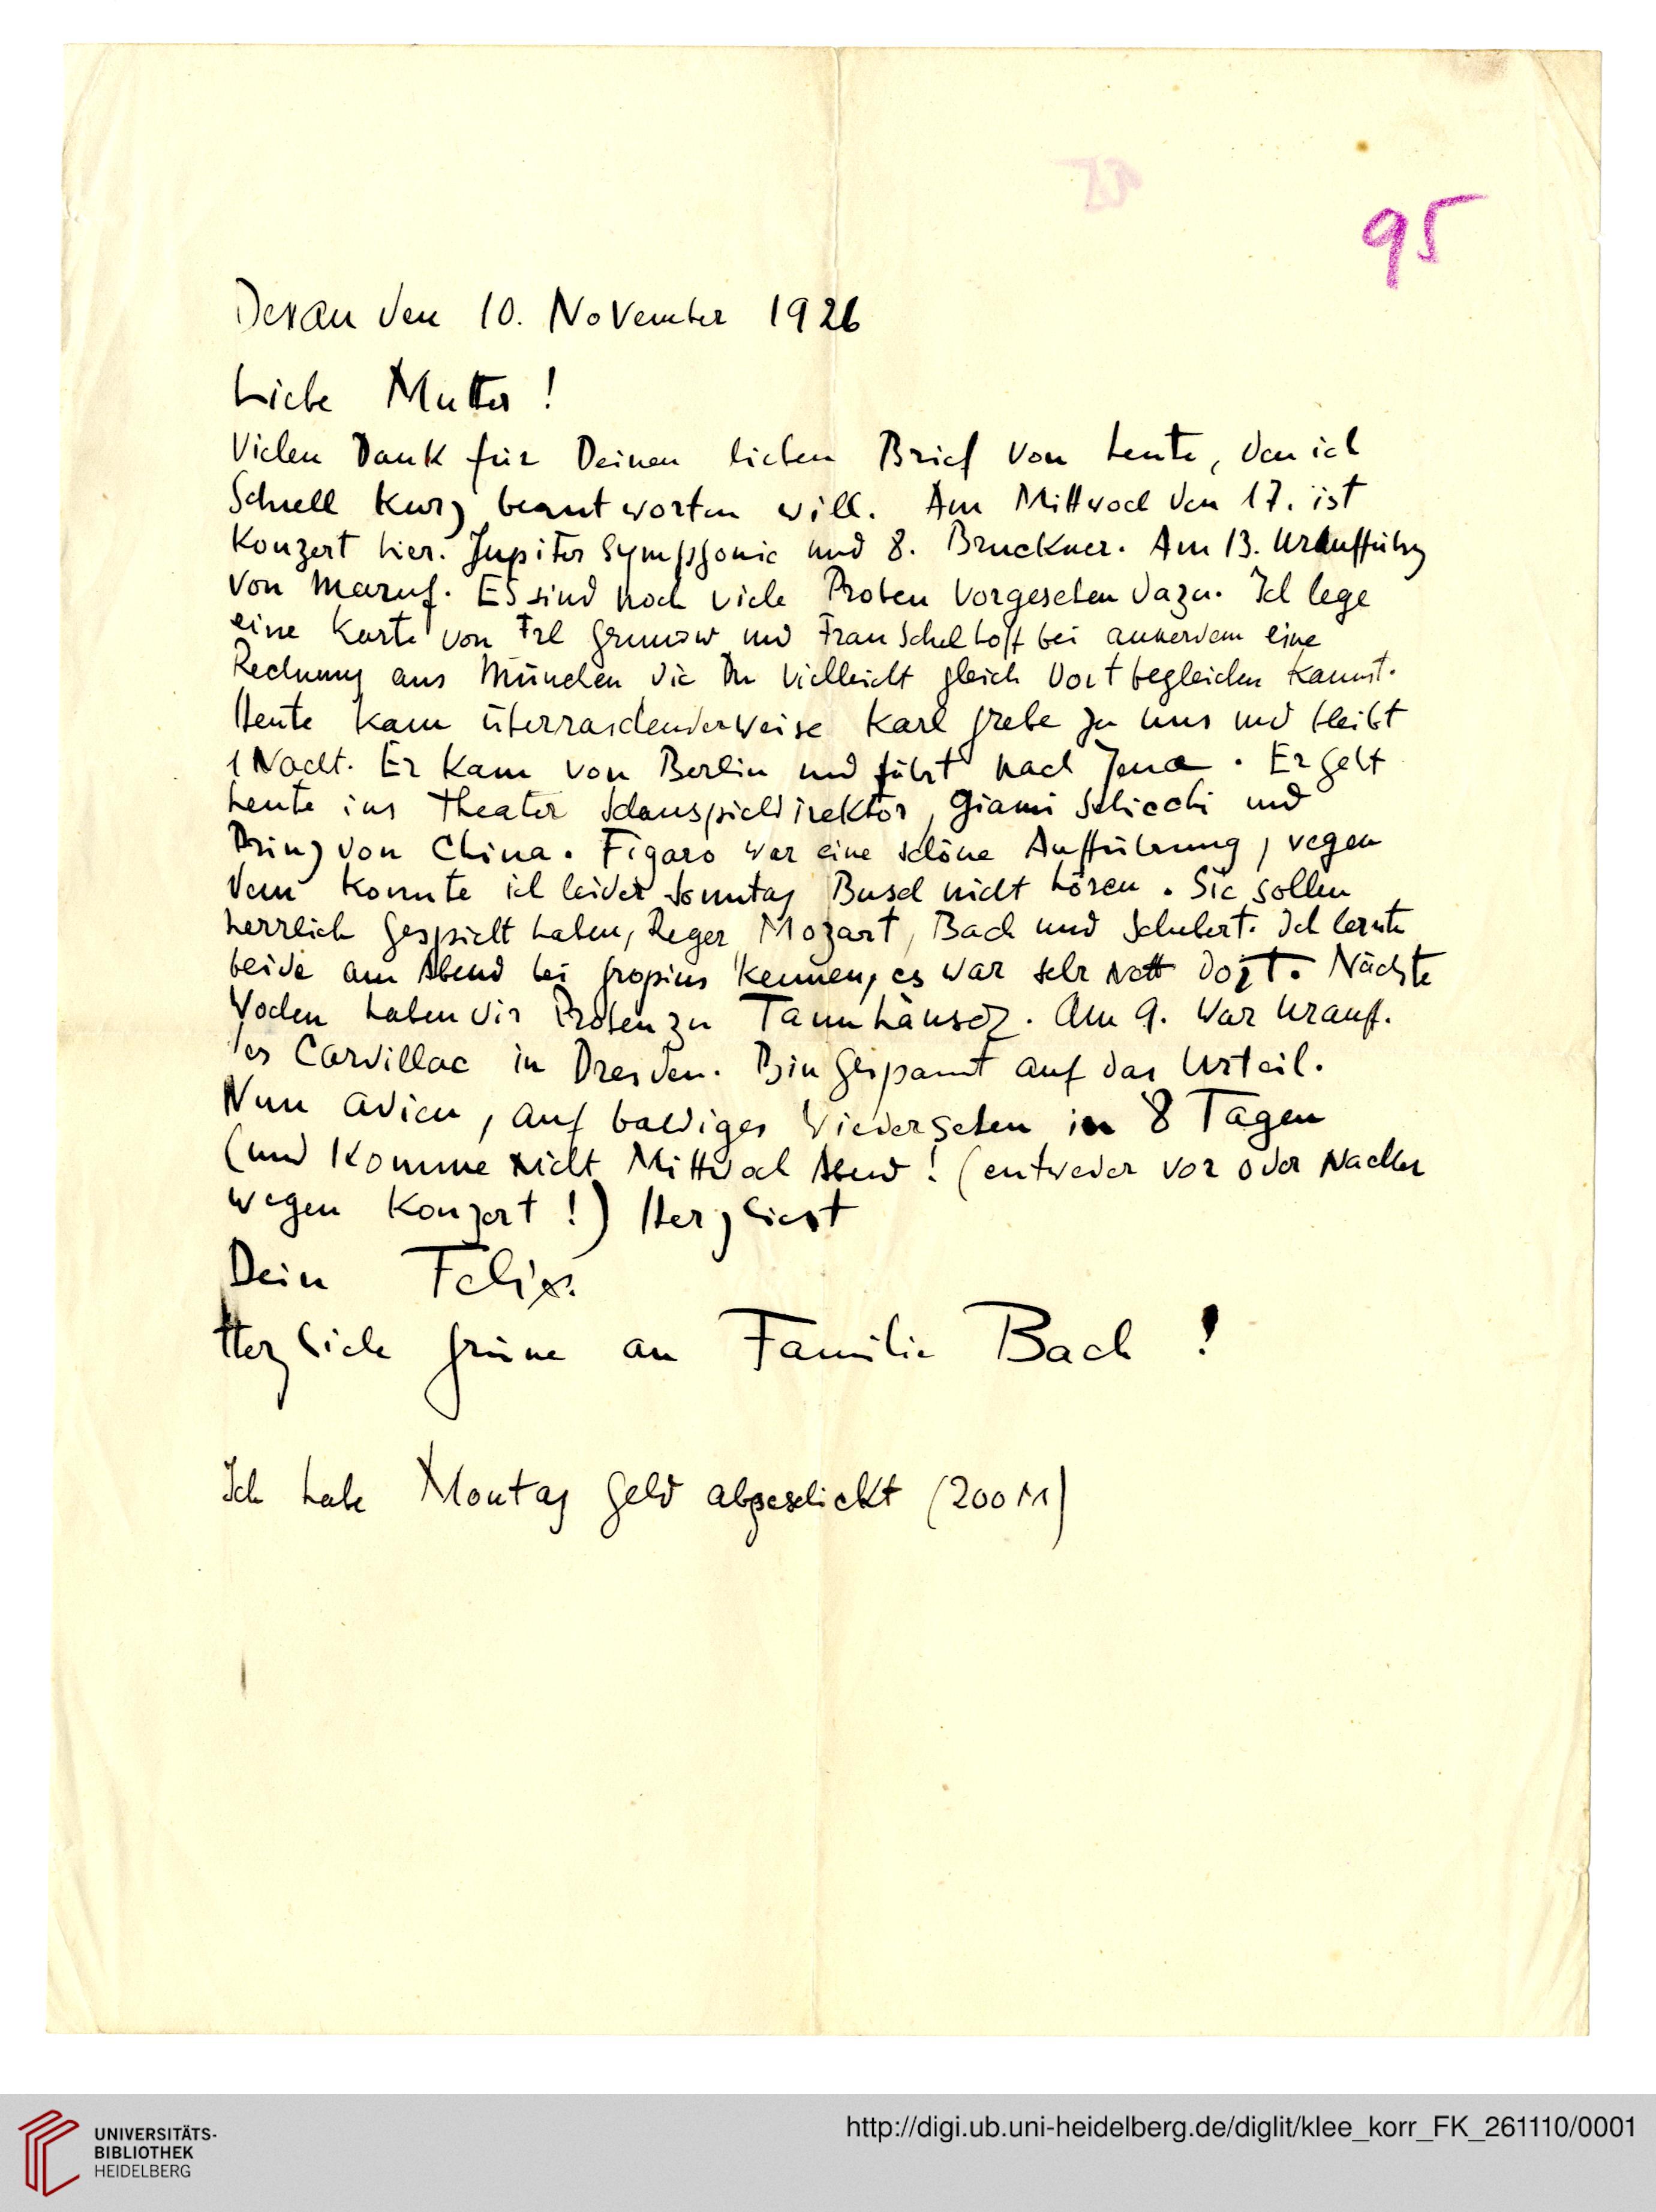 95
Dessau den 10. November 1926
Liebe Mutter!
Vielen Dank für Deinen lieben Brief von heute, den ich
Schnell kurz beantworten will. Am Mittwoch den 17. ist
Konzert hier. Jupiter Symphonie und 8. Bruckner. Am 13. Uraufführg
von Maruf. Es sind noch viele Proben vorgesehen dazu. Ich lege
eine Karte von Frl Grunow und Frau bei ausserdem eine
Rechnung aus München die Du vielleicht gleich dort begleichen kannst.
Heute kam überraschenderweise Karl Grebe zu uns und bleibt
1 Nacht. Er kam von Berlin und fährt nach Jena. Er geht
heute ins Theater Schauspieldirektor, Gianni Schicchi und
Prinz von China. Figaro war eine schöne Aufführung, wegen
dem konnte ich leider Sonntag Busch nicht hören. Sie sollen
herrlich gespielt haben, Reger Mozart, Bach und Schubert. Ich lernte
beide am Abend bei Gropius kennen, es war sehr nett dort. Nächste
Wochen haben wir Proben zu Tannhäuser. Am 9. war Urauff.
des Cardillac in Dresden. Bin gespannt auf das Urteil.
Nun adieu, auf baldiges Wiedersehen in 8 Tagen
(und komme nicht Mittwoch Abend! (entweder vor oder nachher
wegen Konzert!) Herzlichst
Dein Felix.
Herzliche Grüsse an Familie Bach!
Ich habe Montag Geld abgeschickt (200 M)
UNIVERSITÄTS-
BIBLIOTHEK
HEIDELBERG
http://digi.ub.uni-heidelberg.de/diglit/klee_korr_FK_261110/0001